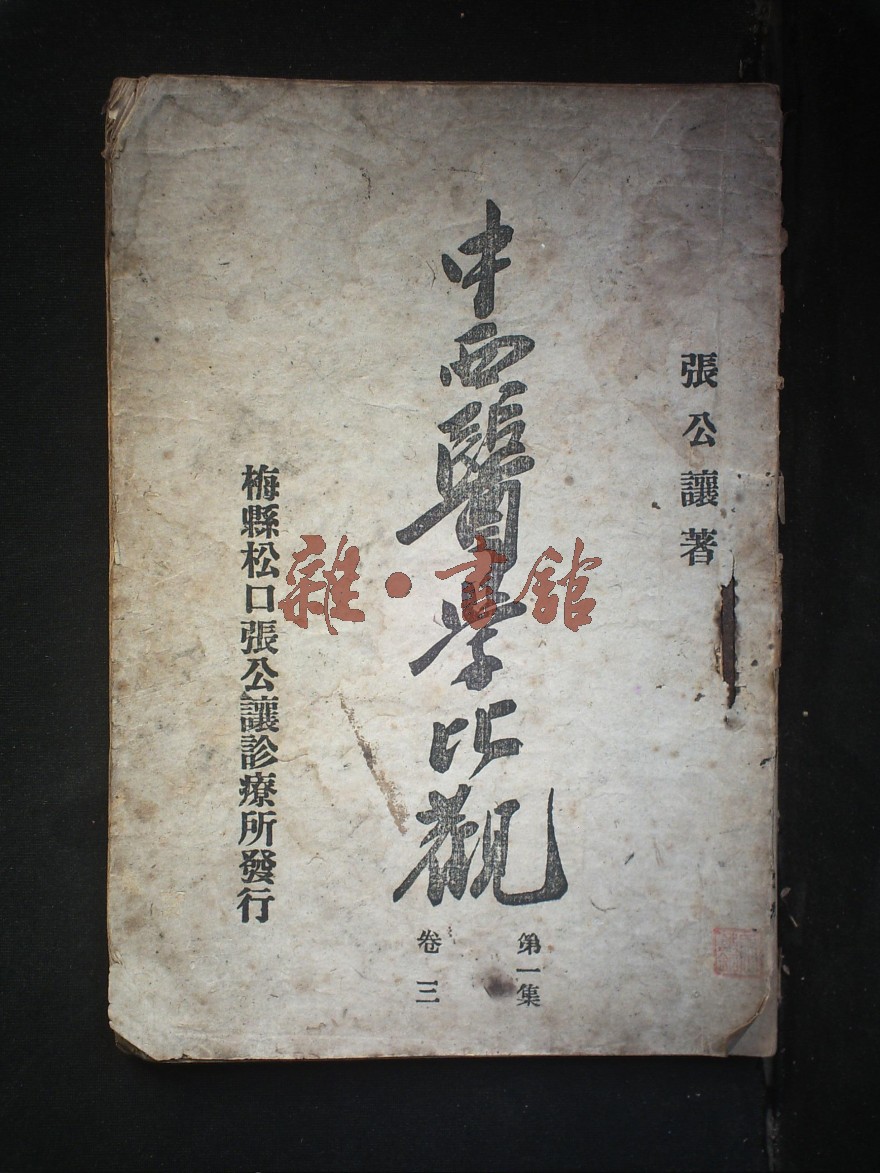 張公讓著
中西醫學比觀
第一集
卷三
梅縣松口張公讓診療所發行
雜·書館